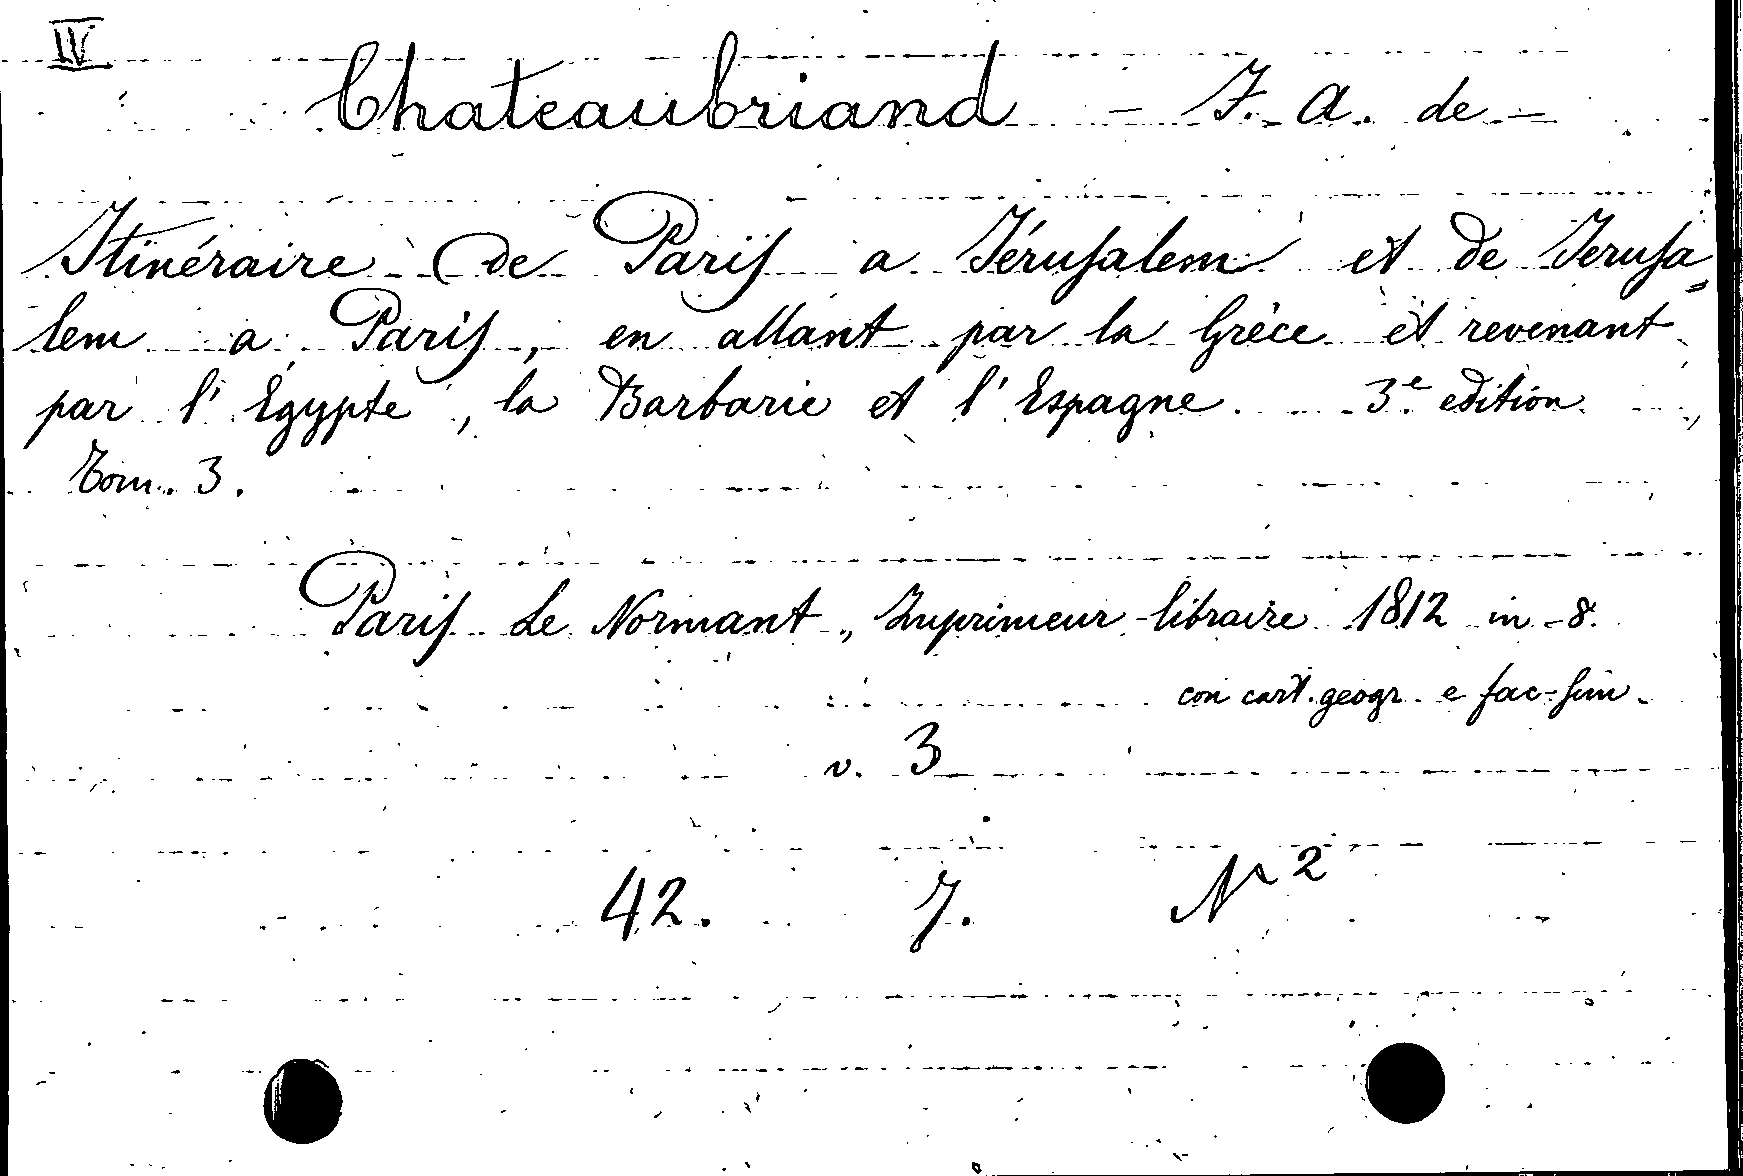 IV
Chateaubriand - F. A. de -
Itinéraire de Paris a Jérusalem et de Jerusa=
lem a Paris, en allant par la Grèce et revenant
par l'Egypte, la Barbarie et l'Espagne. 3e edition
Tom. 3.
Paris Le Normant, Imprimeur-libraire 1812 in-8.
con cart. geogr. e fac-sim.
v. 3
42. 7. N 2